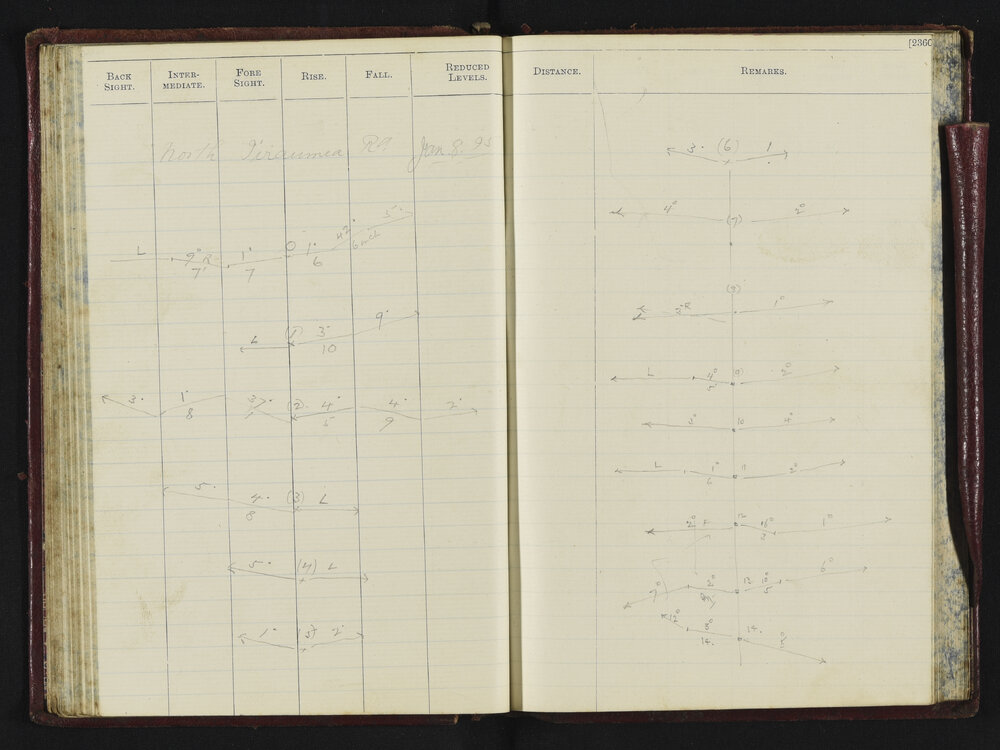 BACK SIGHT. INTER-MEDIATE. FORE SIGHT. RISE. FALL. REDUCED LEVELS.
North Tiraumea Rd Jan 8. 95
5°
L 9° R 1° 0 1° 4°
7' 7 6
(1) 3° 9°
L 10
3° 1° 3° (2) 4° 4° 2°
8 5 9
5° 4° (3) L
8
5° (4) L
1° (5) 2°
DISTANCE. REMARKS.
3° (6) 1
4° (7) 2°
(8)
3° R 1°
L 4° 2°
5
3° 10 4°
L 1° 11 2°
6
2° 12 1°
3
7° 2° 13 10° 6°
5
12° 8° 14.
14. 5°